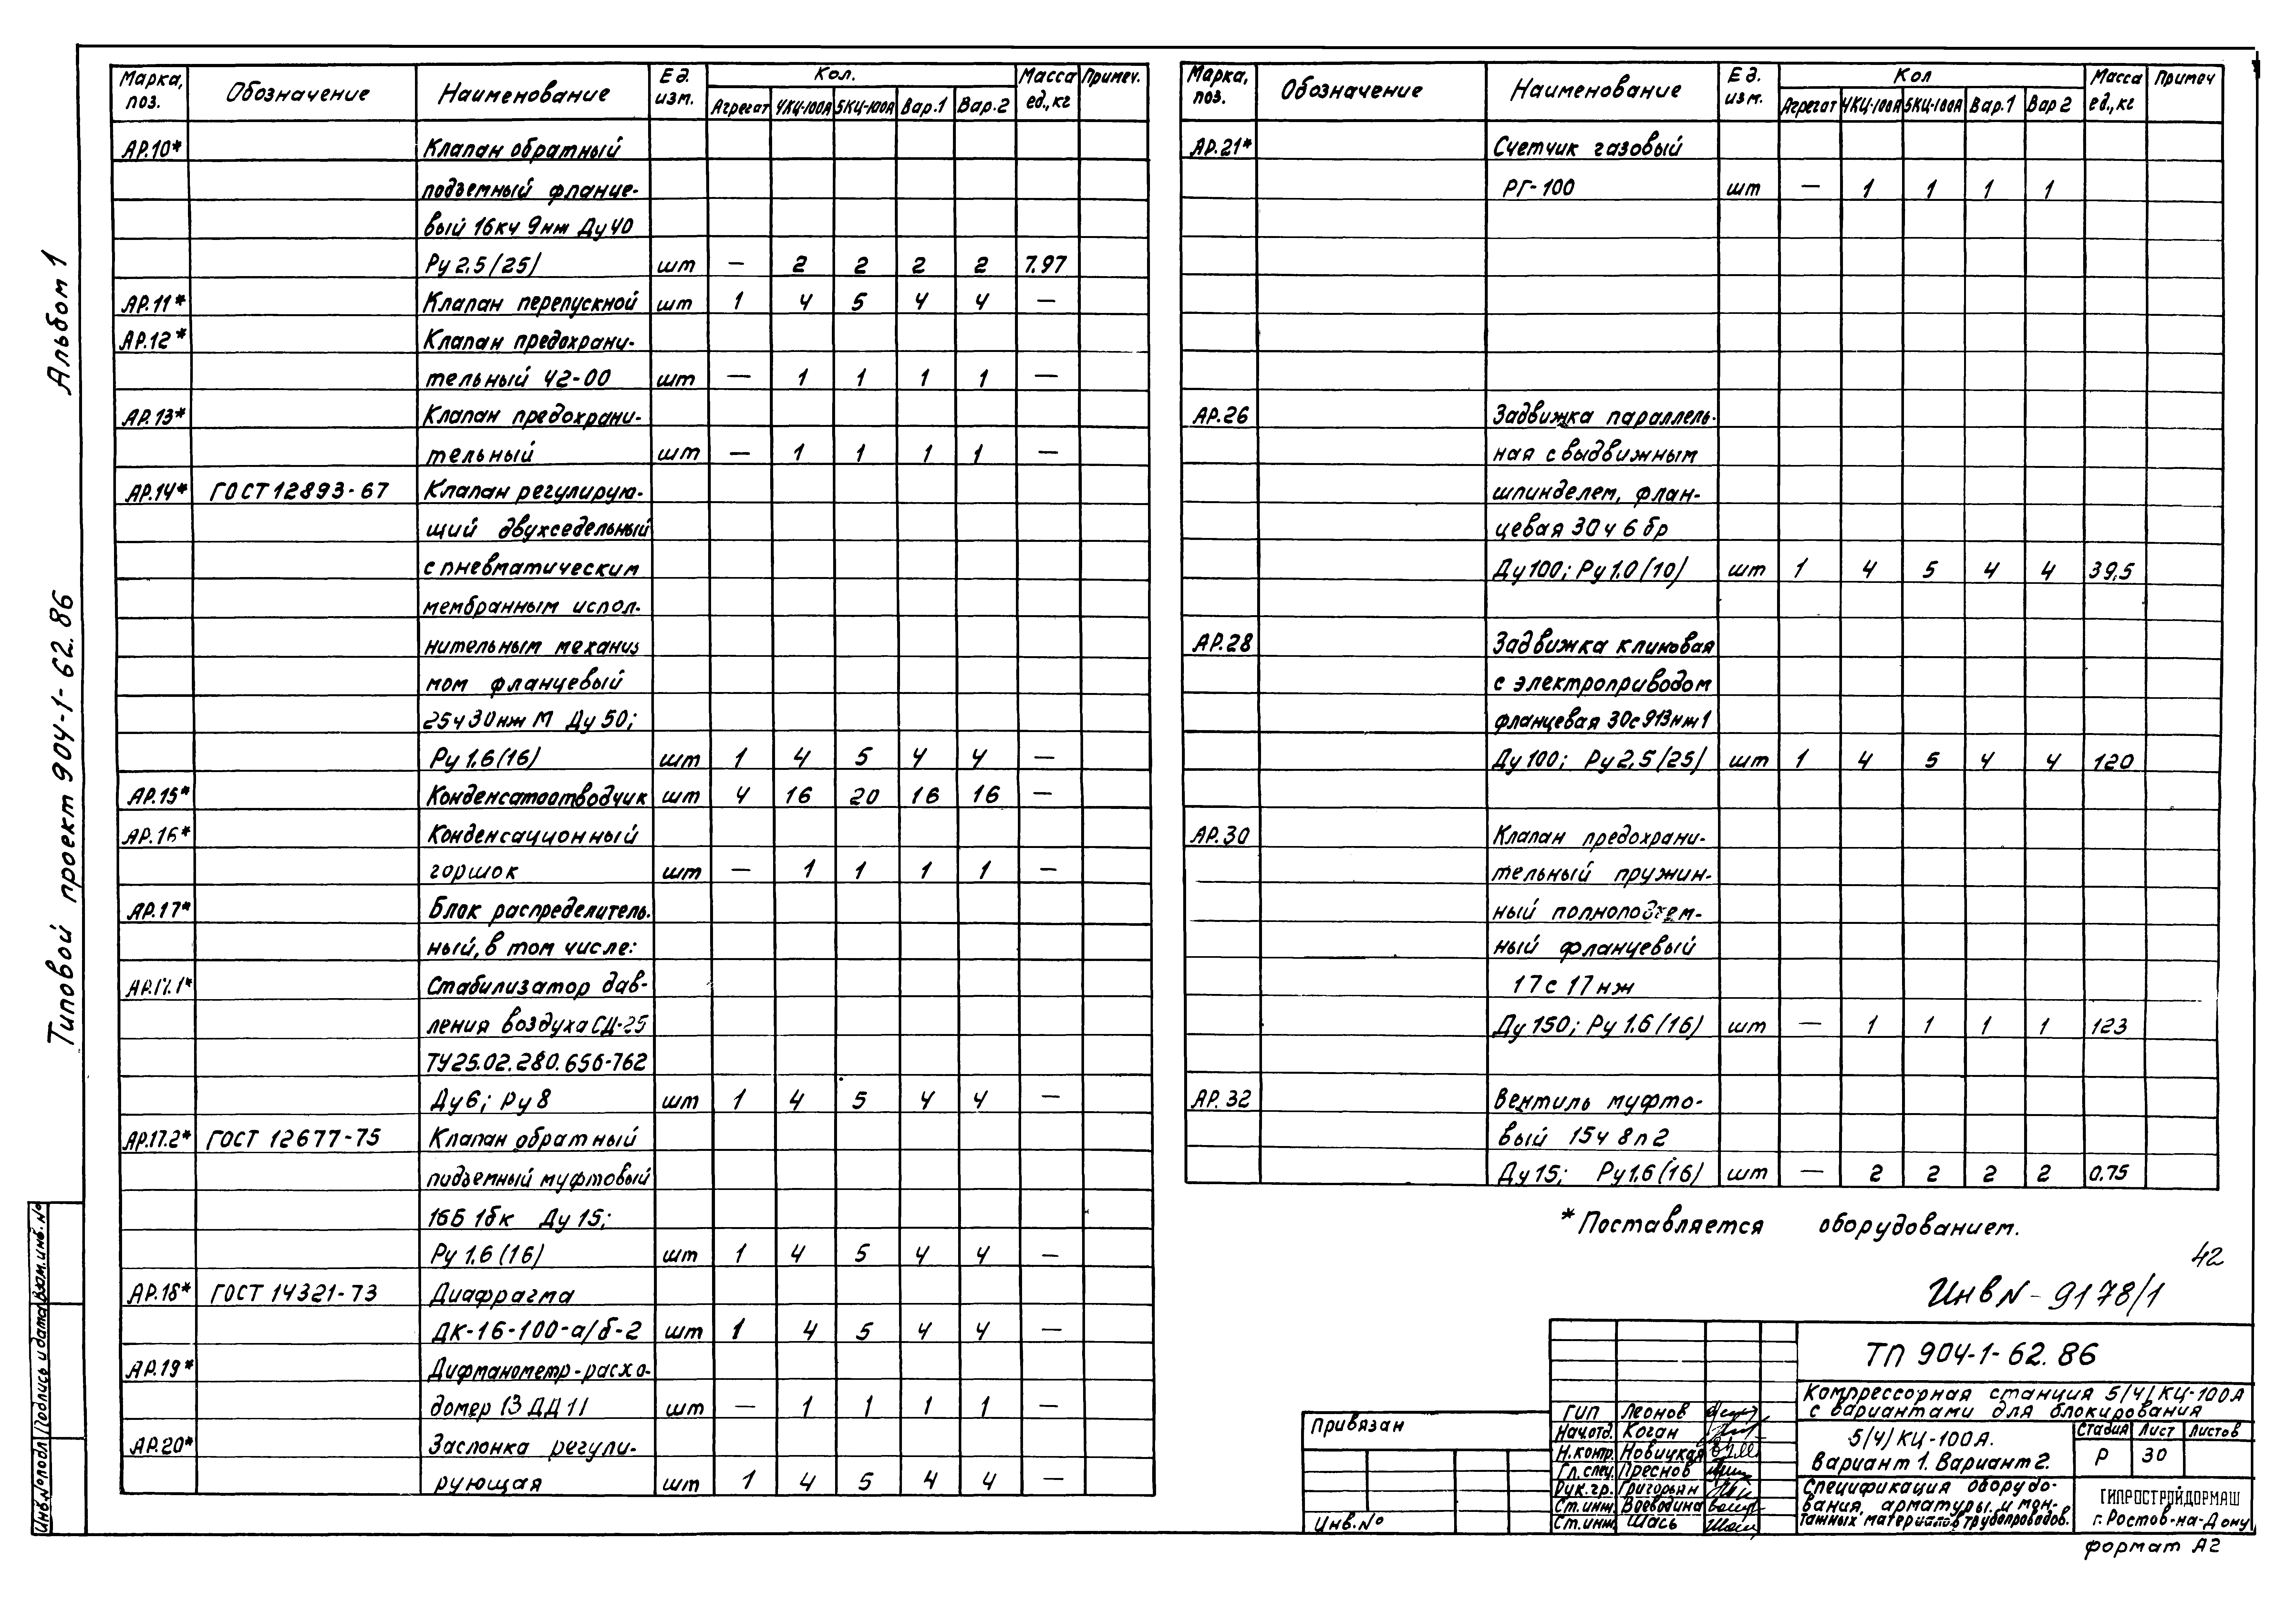 Альбом 1
Типовой проект 904-1-62.86
Марка, поз. Обозначение Наименование Ед. изм. Кол. Масса ед., кг Примеч.
Агрегат 4КЦ-100А 5КЦ-100А Вар.1 Вар.2
АР.10* Клапан обратный
подъемный фланце-
вый 16кч 9нж Ду 40
Ру 2,5/25/ шт — 2 2 2 2 7.97
АР.11* Клапан перепускной шт 1 4 5 4 4 —
АР.12* Клапан предохрани-
тельный 42-00 шт — 1 1 1 1 —
АР.13* Клапан предохрани-
тельный шт — 1 1 1 1 —
АР.14* ГОСТ 12893-67 Клапан регулирую-
щий двухседельный
с пневматическим
мембранным испол-
нительным механиз
мом фланцевый
25ч30нж М Ду 50;
Ру 1.6(16) шт 1 4 5 4 4 —
АР.15* Конденсатоотводчик шт 4 16 20 16 16 —
АР.16* Конденсационный
горшок шт — 1 1 1 1 —
АР.17* Блок распределитель.
ный, в том числе:
АР.17.1* Стабилизатор дав-
ления воздуха СД-25
ТУ25.02.280.656-762
Ду6; Ру 8 шт 1 4 5 4 4 —
АР.17.2* ГОСТ 12677-75 Клапан обратный
подъемный муфтовый
16Б 1бк Ду 15;
Ру 1.6 (16) шт 1 4 5 4 4 —
АР.18* ГОСТ 14321-73 Диафрагма
ДК-16-100-а/б-2 шт 1 4 5 4 4 —
АР.19* Дифманометр-расхо-
домер 13 ДД 11 шт — 1 1 1 1 —
АР.20* Заслонка регули-
рующая шт 1 4 5 4 4 —
Марка, поз. Обозначение Наименование Ед. изм. Кол Масса ед., кг Примеч
Агрегат 4КЦ-100А 5КЦ-100А Вар.1 Вар 2
АР.21* Счетчик газовый
РГ-100 шт — 1 1 1 1
АР.26 Задвижка параллель-
ная с выдвижным
шпинделем, флан-
цевая 30ч 6 бр
Ду 100; Ру 1.0 (10) шт 1 4 5 4 4 39,5
АР.28 Задвижка клиновая
с электроприводом
фланцевая 30с 913нж1
Ду 100; Ру 2,5/25/ шт 1 4 5 4 4 120
АР.30 Клапан предохрани-
тельный пружин-
ный полноподъем-
ный фланцевый
17с 17нж
Ду 150; Ру 1.6 (16) шт — 1 1 1 1 123
АР.32 Вентиль муфто-
вый 15ч 8п2
Ду 15; Ру 1,6 (16) шт — 2 2 2 2 0.75
* Поставляется оборудованием.
42
Инв N - 9178/1
Привязан
Инв.№
ГИП Леонов
Нач.отд. Коган
Н.контр. Новицкая
Гл.спец. Преснов
Рук.гр. Григорьян
Ст.инж. Воеводина
Ст.инж. Шась
ТП 904-1-62.86
Компрессорная станция 5/4/КЦ-100А
с вариантами для блокирования
5/4/КЦ-100А.
Вариант 1. Вариант 2.
Стадия Лист Листов
Р 30
Спецификация оборудо-
вания, арматуры и мон-
тажных материалов трубопроводов.
ГИПРОСТРОЙДОРМАШ
г. Ростов-на-Дону
формат А2
Инв.№подл Подпись и дата Взам.инв.№